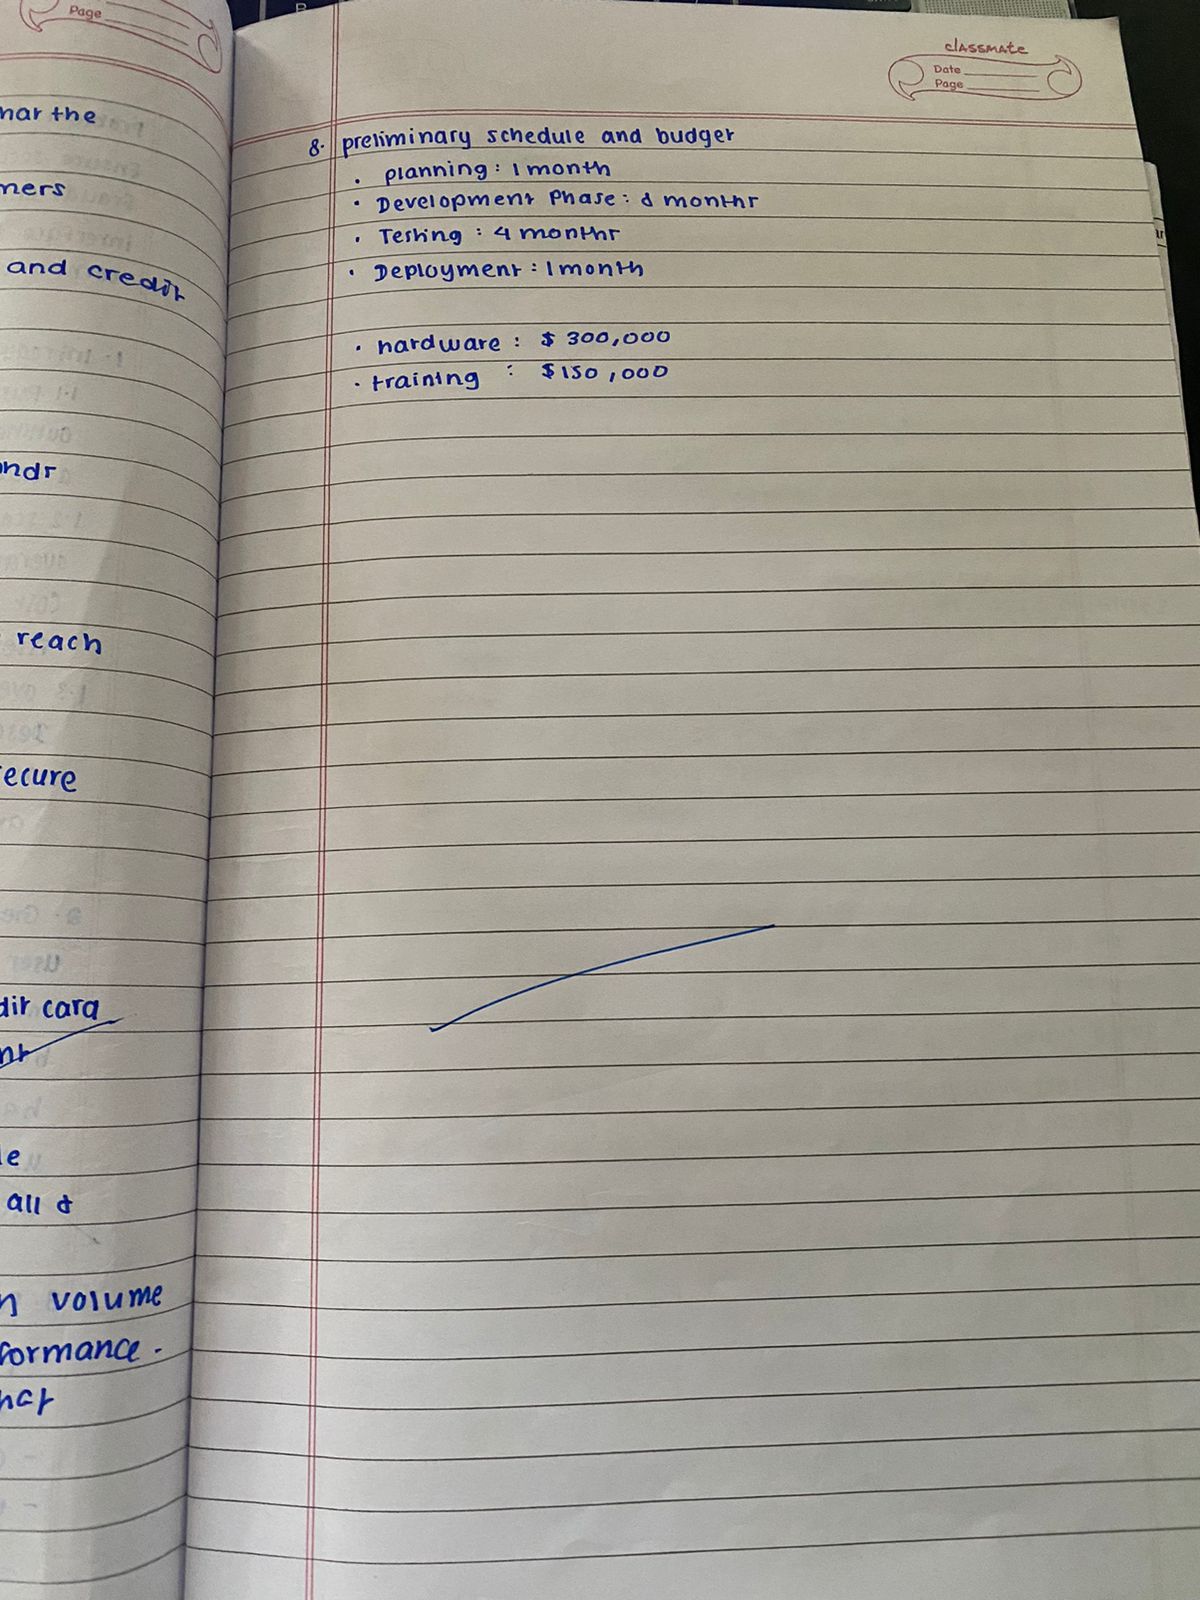 Page
har the
mers
and credit
ndr
reach
ecure
dit card
nt
le
all &
n volume
formance.
hat
classmate
Date
Page
8. preliminary schedule and budget
. planning : 1 month
. Development Phase : 8 months
. Testing : 4 months
. Deployment : 1 month
. hardware : $ 300,000
. training : $ 150,000